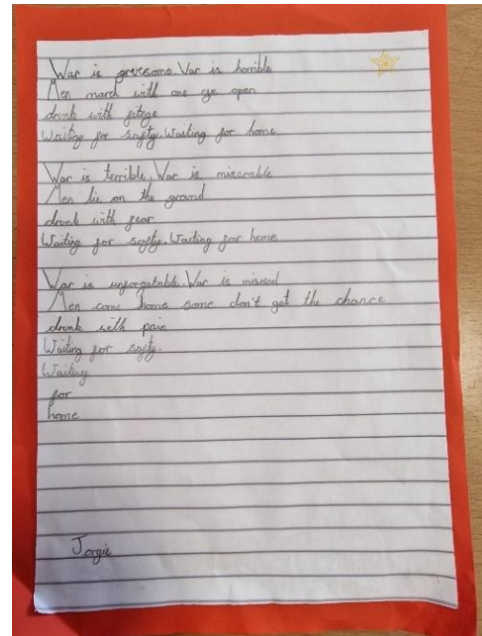 War is gruesome. War is horrible
Men march with one eye open
drunk with fitege
Waiting for safty. Waiting for home

War is terrible. War is miserable
Men lie on the ground
drunk with fear
Waiting for safty. Waiting for home

War is unforgetable. War is
Men come home some don't get the chance
drunk with pain
Waiting for safty.
Waiting
for
home

Jorgie